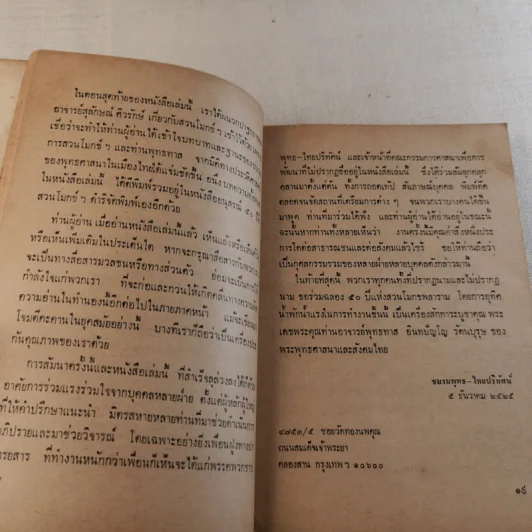 ในตอนสุดท้ายของหนังสือเล่มนี้ เราได้ผนวกปาฐกถา
อาจารย์สุลักษณ์ ศิวรักษ์ เกี่ยวกับสวนโมกข์ ฯ เข้าไว้ด้วย
เชื่อว่าจะทำให้ท่านผู้อ่านได้เข้าใจบทบาทและฐานะของ
การสวนโมกข์ ฯ และท่านพุทธทาส จากมิติทางประวัติ
ของพุทธศาสนาในเมืองไทยได้แจ่มชัดขึ้น อนึ่ง บทความ
ในหนังสือ ได้ตีพิมพ์รวมอยู่ในหนังสืออนุสรณ์ ๕๐ ปี
สวนโมกข์ ฯ ดำริจัดพิมพ์เองอีกด้วย
ท่านผู้อ่าน เมื่ออ่านหนังสือนี้แล้ว เห็นแล้วหรือ
หรือเห็นเพิ่มเติมในประเด็นใด หากจะกรุณาสื่อสารกับ
จะเป็นทางสื่อสารมวลชนหรือทางส่วนตัว ย่อมจะเป็น
กำลังใจแก่พวกเรา ที่จะก่อและกวนให้เกิดคลื่นทางความคิด
ความอ่านในทำนองนี้อีกต่อไปในภายภาคหน้า แม้จะ
โจมตีคะคานในยุคสมัยอย่างนี้ บางทีเราก็ถือว่าเป็นเครื่องประ
กันคุณภาพของเราด้วย
การสัมมนาครั้งนี้และหนังสือเล่มนี้ ที่สำเร็จลุล่วงลงได้
อาศัยการร่วมแรงร่วมใจจากบุคคลหลายฝ่าย ตั้งแต่ผู้หลักผู้ใหญ่
ที่ให้คำปรึกษาแนะนำ มิตรสหายหลายท่านที่มาช่วยดำเนินการ
อภิปรายและมาช่วยวิจารณ์ โดยเฉพาะอย่างยิ่งเพื่อนฝูง
ที่ทำงานหนักกว่าเพื่อนก็เห็นจะได้แก่พรรคพวกชาว
พุทธ-ไทยปริทัศน์ และเจ้าหน้าที่คณะกรรมการศาสนาเพื่อการ
พัฒนาที่ไม่ปรากฏชื่ออยู่ในหนังสือเล่มนี้ ซึ่งได้ร่วมล้มลุกคลุก
คลานมาตั้งแต่ต้น ทั้งการถอดเทป สัมภาษณ์บุคคล พิมพ์ดีด
ตลอดจนจัดสถานที่เตรียมการต่าง ๆ จนพวกเราบางคนได้ขึ้น
มาพูด ท่านก็มาร่วมได้ฟัง และท่านผู้อ่านได้อ่านอยู่ในขณะนี้
ฉะนั้นหากท่านทั้งหลายเห็นว่า งานครั้งนี้มีคุณค่าสิ่งหนึ่งประ
การใดต่อสาธารณชนและต่อสังคมแล้วไซร้ ขอให้ท่านถือว่า
เป็นกุศลกรรมรวมของหลายฝ่ายหลายบุคคลดังกล่าวมานี้
ในท้ายที่สุดนี้ พวกเราทุกคนทั้งที่ปรากฏนามและไม่ปรากฏ
นาม ขอร่วมฉลอง ๕๐ ปีแห่งสวนโมกขพลาราม โดยการอุทิศ
น้ำพักน้ำแรงในการทำงานชิ้นนี้ เป็นเครื่องสักการะบูชาคุณ พระ
เดชพระคุณท่านอาจารย์พุทธทาส อินทปัญโญ รัตนบุรุษ ของ
พระพุทธศาสนาและสังคมไทย
ชมรมพุทธ-ไทยปริทัศน์
๕ ธันวาคม ๒๕๒๕
๔๗๕๓/๕ ซอยวัดทองนพคุณ
ถนนสมเด็จเจ้าพระยา
คลองสาน กรุงเทพ ฯ ๑๐๖๐๐
๑๙